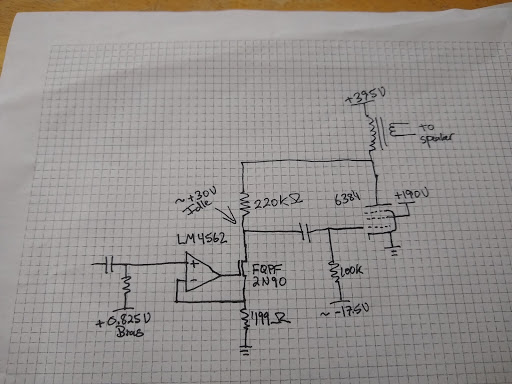 +395V
to
speaker
~+30V
Idle
220kΩ
6384
+190V
LM4562
+
-
FQPF
2N90
100k
+0.825V
Bias
499Ω
~-17.5V